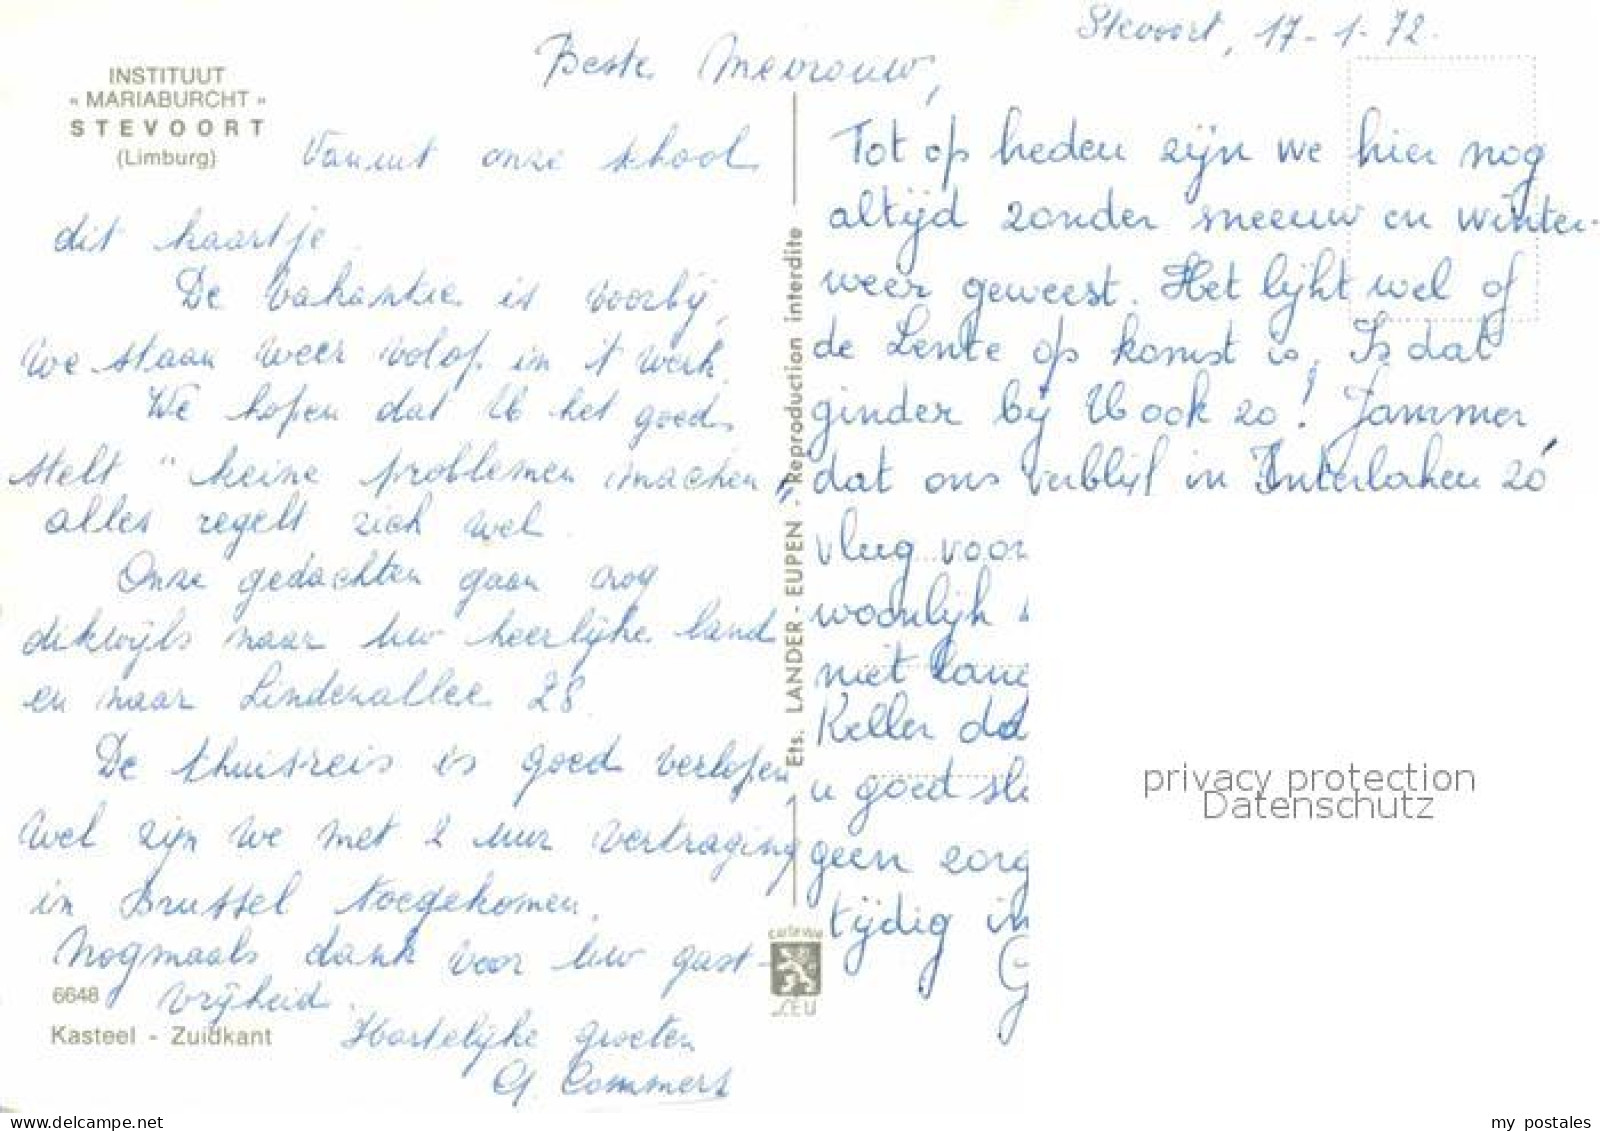 Stevoort, 17-1-72.
INSTITUUT
« MARIABURCHT »
STEVOORT
(Limburg)
Beste Mevrouw,
Vanuit onze school
dit kaartje.
De vakantie is voorbij,
we staan weer volop in 't werk.
We hopen dat U het goed
stelt "keine problemen machen"
alles regelt zich wel.
Onze gedachten gaan nog
dikwijls naar uw heerlijke land
en naar Lindenallee 28.
De thuisreis is goed verlopen
wel zijn we met 2 uur vertraging
in Brussel toegekomen.
Nogmaals dank voor uw gast-
vrijheid.
Hartelijke groeten
G. Commers
6648
Kasteel - Zuidkant
Ets. LANDER - EUPEN - Reproduction interdite
Tot op heden zijn we hier nog
altijd zonder sneeuw en winter-
weer geweest. Het lijkt wel of
de Lente op komst is. Is dat
ginder bij U ook zo! Jammer
dat ons verblijf in Interlaken zó
vlug voor
woonlijk
niet lang
Keller dat
u goed sli
geen zorg
tijdig in
G
privacy protection
Datenschutz
my postales